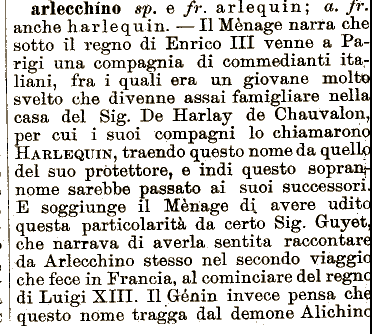 arlecchino sp. e fr. arlequin; a. fr.
anche harlequin. — Il Mènage narra che
sotto il regno di Enrico III venne a Pa-
rigi una compagnia di commedianti ita-
liani, fra i quali era un giovane molto
svelto che divenne assai famigliare nella
casa del Sig. De Harlay de Chauvalon,
per cui i suoi compagni lo chiamarono
HARLEQUIN, traendo questo nome da quello
del suo protettore, e indi questo sopran-
nome sarebbe passato ai suoi successori.
E soggiunge il Mènage di avere udito
questa particolarità da certo Sig. Guyet,
che narrava di averla sentita raccontare
da Arlecchino stesso nel secondo viaggio
che fece in Francia, al cominciare del regno
di Luigi XIII. Il Génin invece pensa che
questo nome tragga dal demone Alichino